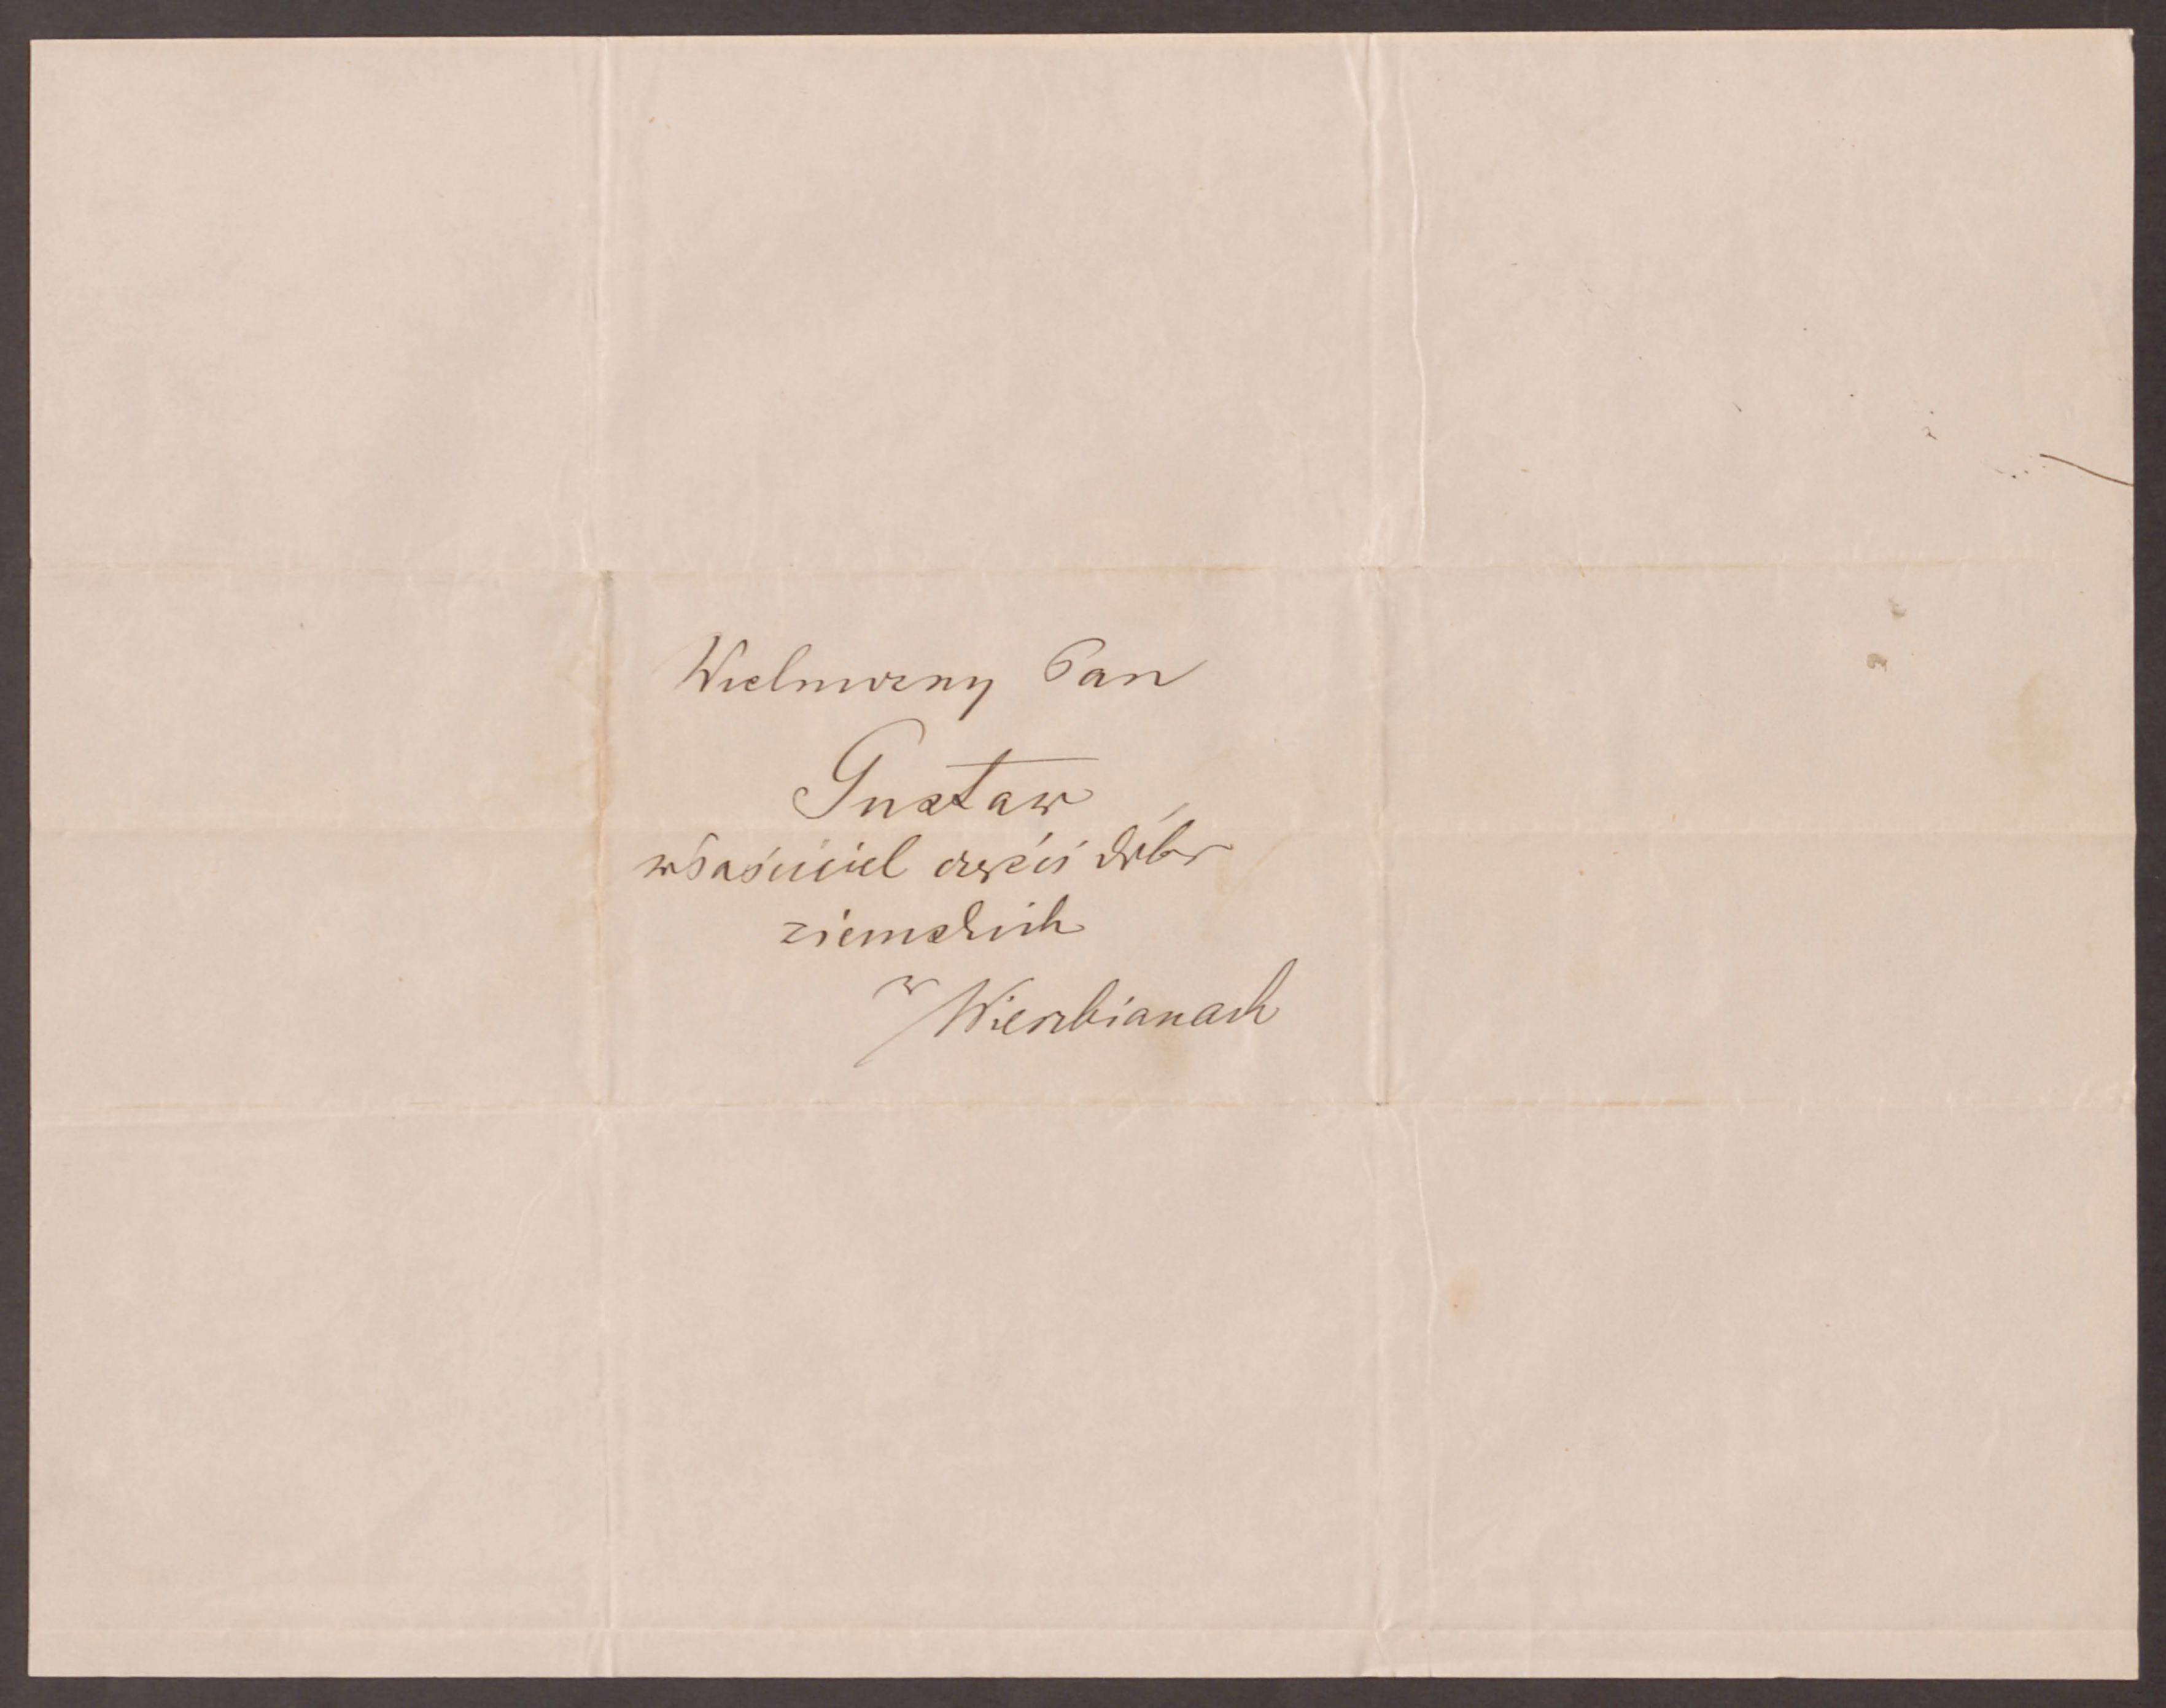 Wielmożny Pan
Gustaw
właściciel części dóbr
ziemskich
w Wierzbianach